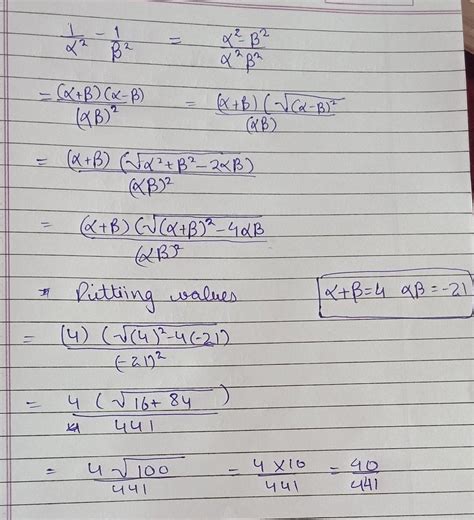 1/α² - 1/β² = α²-β²/α²β²
= (α+β)(α-β)/(αβ)² = (α+β)(√(α-β)²/(αβ)
= (α+β)(√α²+β²-2αβ)/(αβ)²
= (α+β)(√(α+β)²-4αβ/(αβ)²
* Putting values α+β=4 αβ=-21
= (4)(√(4)²-4(-21)/(-21)²
= 4(√16+84)/441
= 4√100/441 = 4×10/441 = 40/441